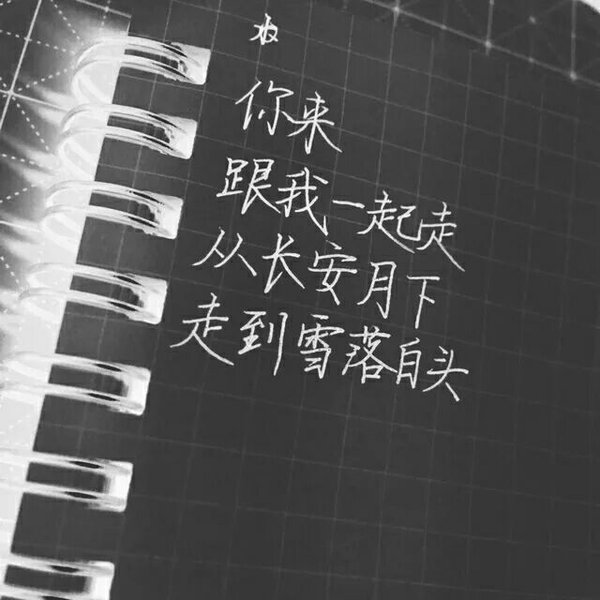 你来
跟我一起走
从长安月下
走到雪落白头